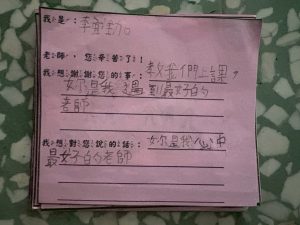 我是：李
老師，您辛苦了！
我想謝謝您的事：教我們上課，
妳是我遇到最好的
老師
我想對您說的話：妳是我心中
最好的老師